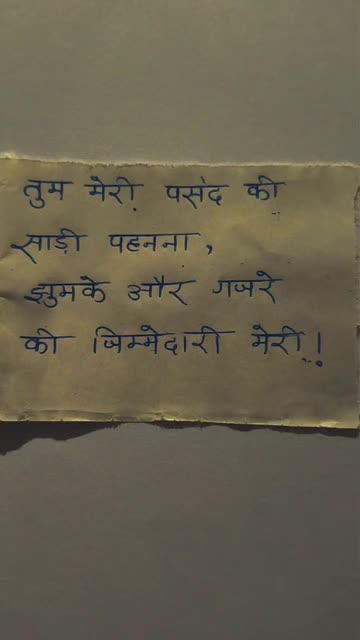 तुम मेरी पसंद की
साड़ी पहनना,
झुमके और गजरे
की जिम्मेदारी मेरी..!